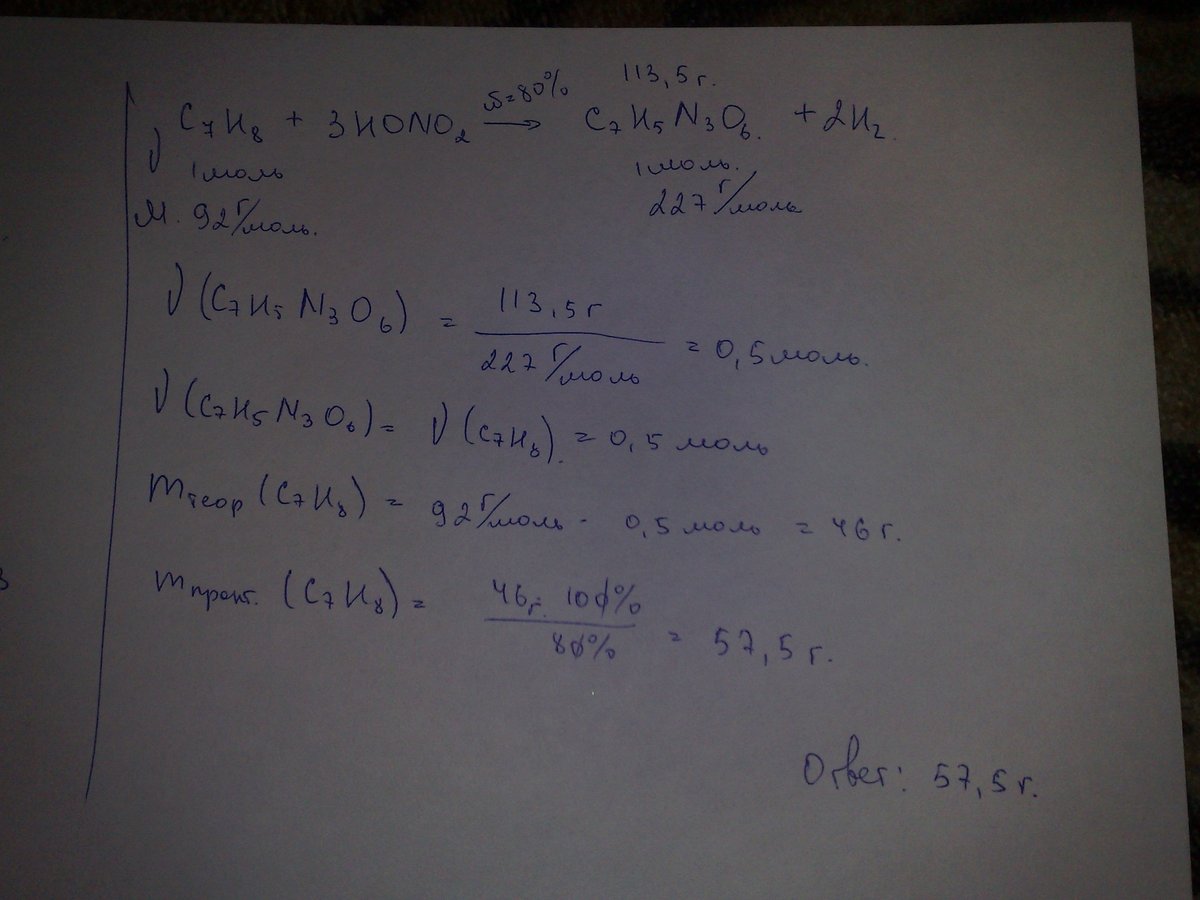 113,5 г.
C₇H₈ + 3HONO₂ ω=80% → C₇H₅N₃O₆. + 2H₂.
ν 1 моль 1 моль.
M. 92 г/моль. 227 г/моль
ν(C₇H₅N₃O₆) = 113,5 г / 227 г/моль = 0,5 моль.
ν(C₇H₅N₃O₆) = ν(C₇H₈). = 0,5 моль
mтеор(C₇H₈) = 92 г/моль · 0,5 моль = 46 г.
mпракт. (C₇H₈) = 46 г. · 100% / 80% = 57,5 г.
Ответ: 57,5 г.